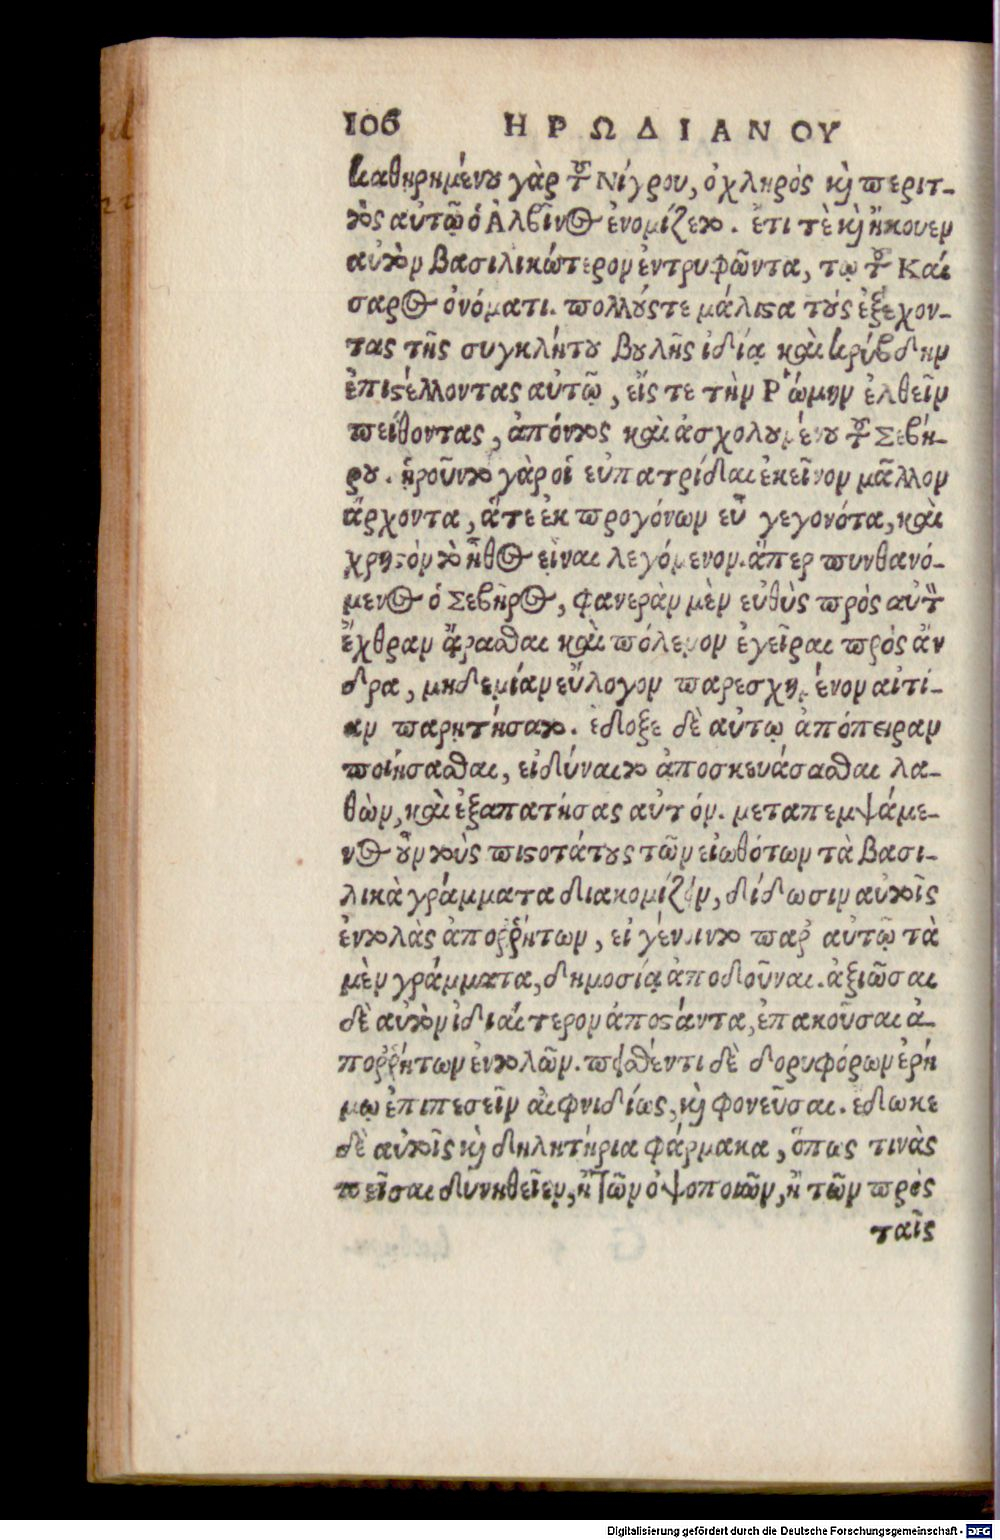 106 ΗΡΩΔΙΑΝΟΥ
καθῃρημένου γὰρ τοῦ Νίγρου, ὀχληρὸς καὶ περιτ-
τὸς αὐτῷ ὁ Ἀλβῖνος ἐνομίζετο. ἔτι τὲ καὶ ἤκουεν
αὐτὸν βασιλικώτερον ἐντρυφῶντα, τῳ τοῦ Καί
σαρος ὀνόματι. πολλούς τε μάλιστα τοὺς ἐξέχον-
τας τῆς συγκλήτου βουλῆς ἰδίᾳ καὶ κρύβδην
ἐπιστέλλοντας αὐτῷ, εἴς τε τὴν Ῥώμην ἐλθεῖν
πείθοντας, ἀπόντος καὶ ἀσχολουμένου τοῦ Σεβή-
ρου. ᾑροῦντο γὰρ οἱ εὐπατρίδαι ἐκεῖνον μᾶλλον
ἄρχοντα, ἅτε ἐκ προγόνων εὖ γεγονότα, καὶ
χρηστὸν τὸ ἦθος εἶναι λεγόμενον. ἅπερ πυνθανό-
μενος ὁ Σεβῆρος, φανερὰν μὲν εὐθὺς πρὸς αὐτὸν
ἔχθραν ἄρασθαι καὶ πόλεμον ἐγεῖραι πρὸς ἄν
δρα, μηδεμίαν εὔλογον παρεσχημένον αἰτί-
αν παρῃτήσατο. ἔδοξε δὲ αὐτῳ ἀπόπειραν
ποιήσασθαι, εἰ δύναιτο ἀποσκευάσασθαι λα-
θὼν, καὶ ἐξαπατήσας αὐτόν. μεταπεμψάμε-
νος οὖν τοὺς πιστοτάτους τῶν εἰωθότων τὰ βασι-
λικὰ γράμματα διακομίζειν, δίδωσιν αὐτοῖς
ἐντολὰς ἀποῤῥήτων, εἰ γένοιντο παρ αὐτῷ τὰ
μὲν γράμματα, δημοσίᾳ ἀποδοῦναι. ἀξιῶσαι
δὲ αὐτὸν ἰδιαίτερον ἀποστάντα, ἐπακοῦσαι ἀ-
ποῤῥήτων ἐντολῶν. πεισθέντι δὲ δορυφόρων ἐρή
μῳ ἐπιπεσεῖν αἰφνιδίως, καὶ φονεῦσαι. ἔδωκε
δὲ αὐτοῖς καὶ δηλητήρια φάρμακα, ὅπως τινὰς
πεῖσαι δυνηθεῖεν, ἢ τῶν ὀψοποιῶν, ἢ τῶν πρὸς
ταῖς
Digitalisierung gefördert durch die Deutsche Forschungsgemeinschaft - DFG